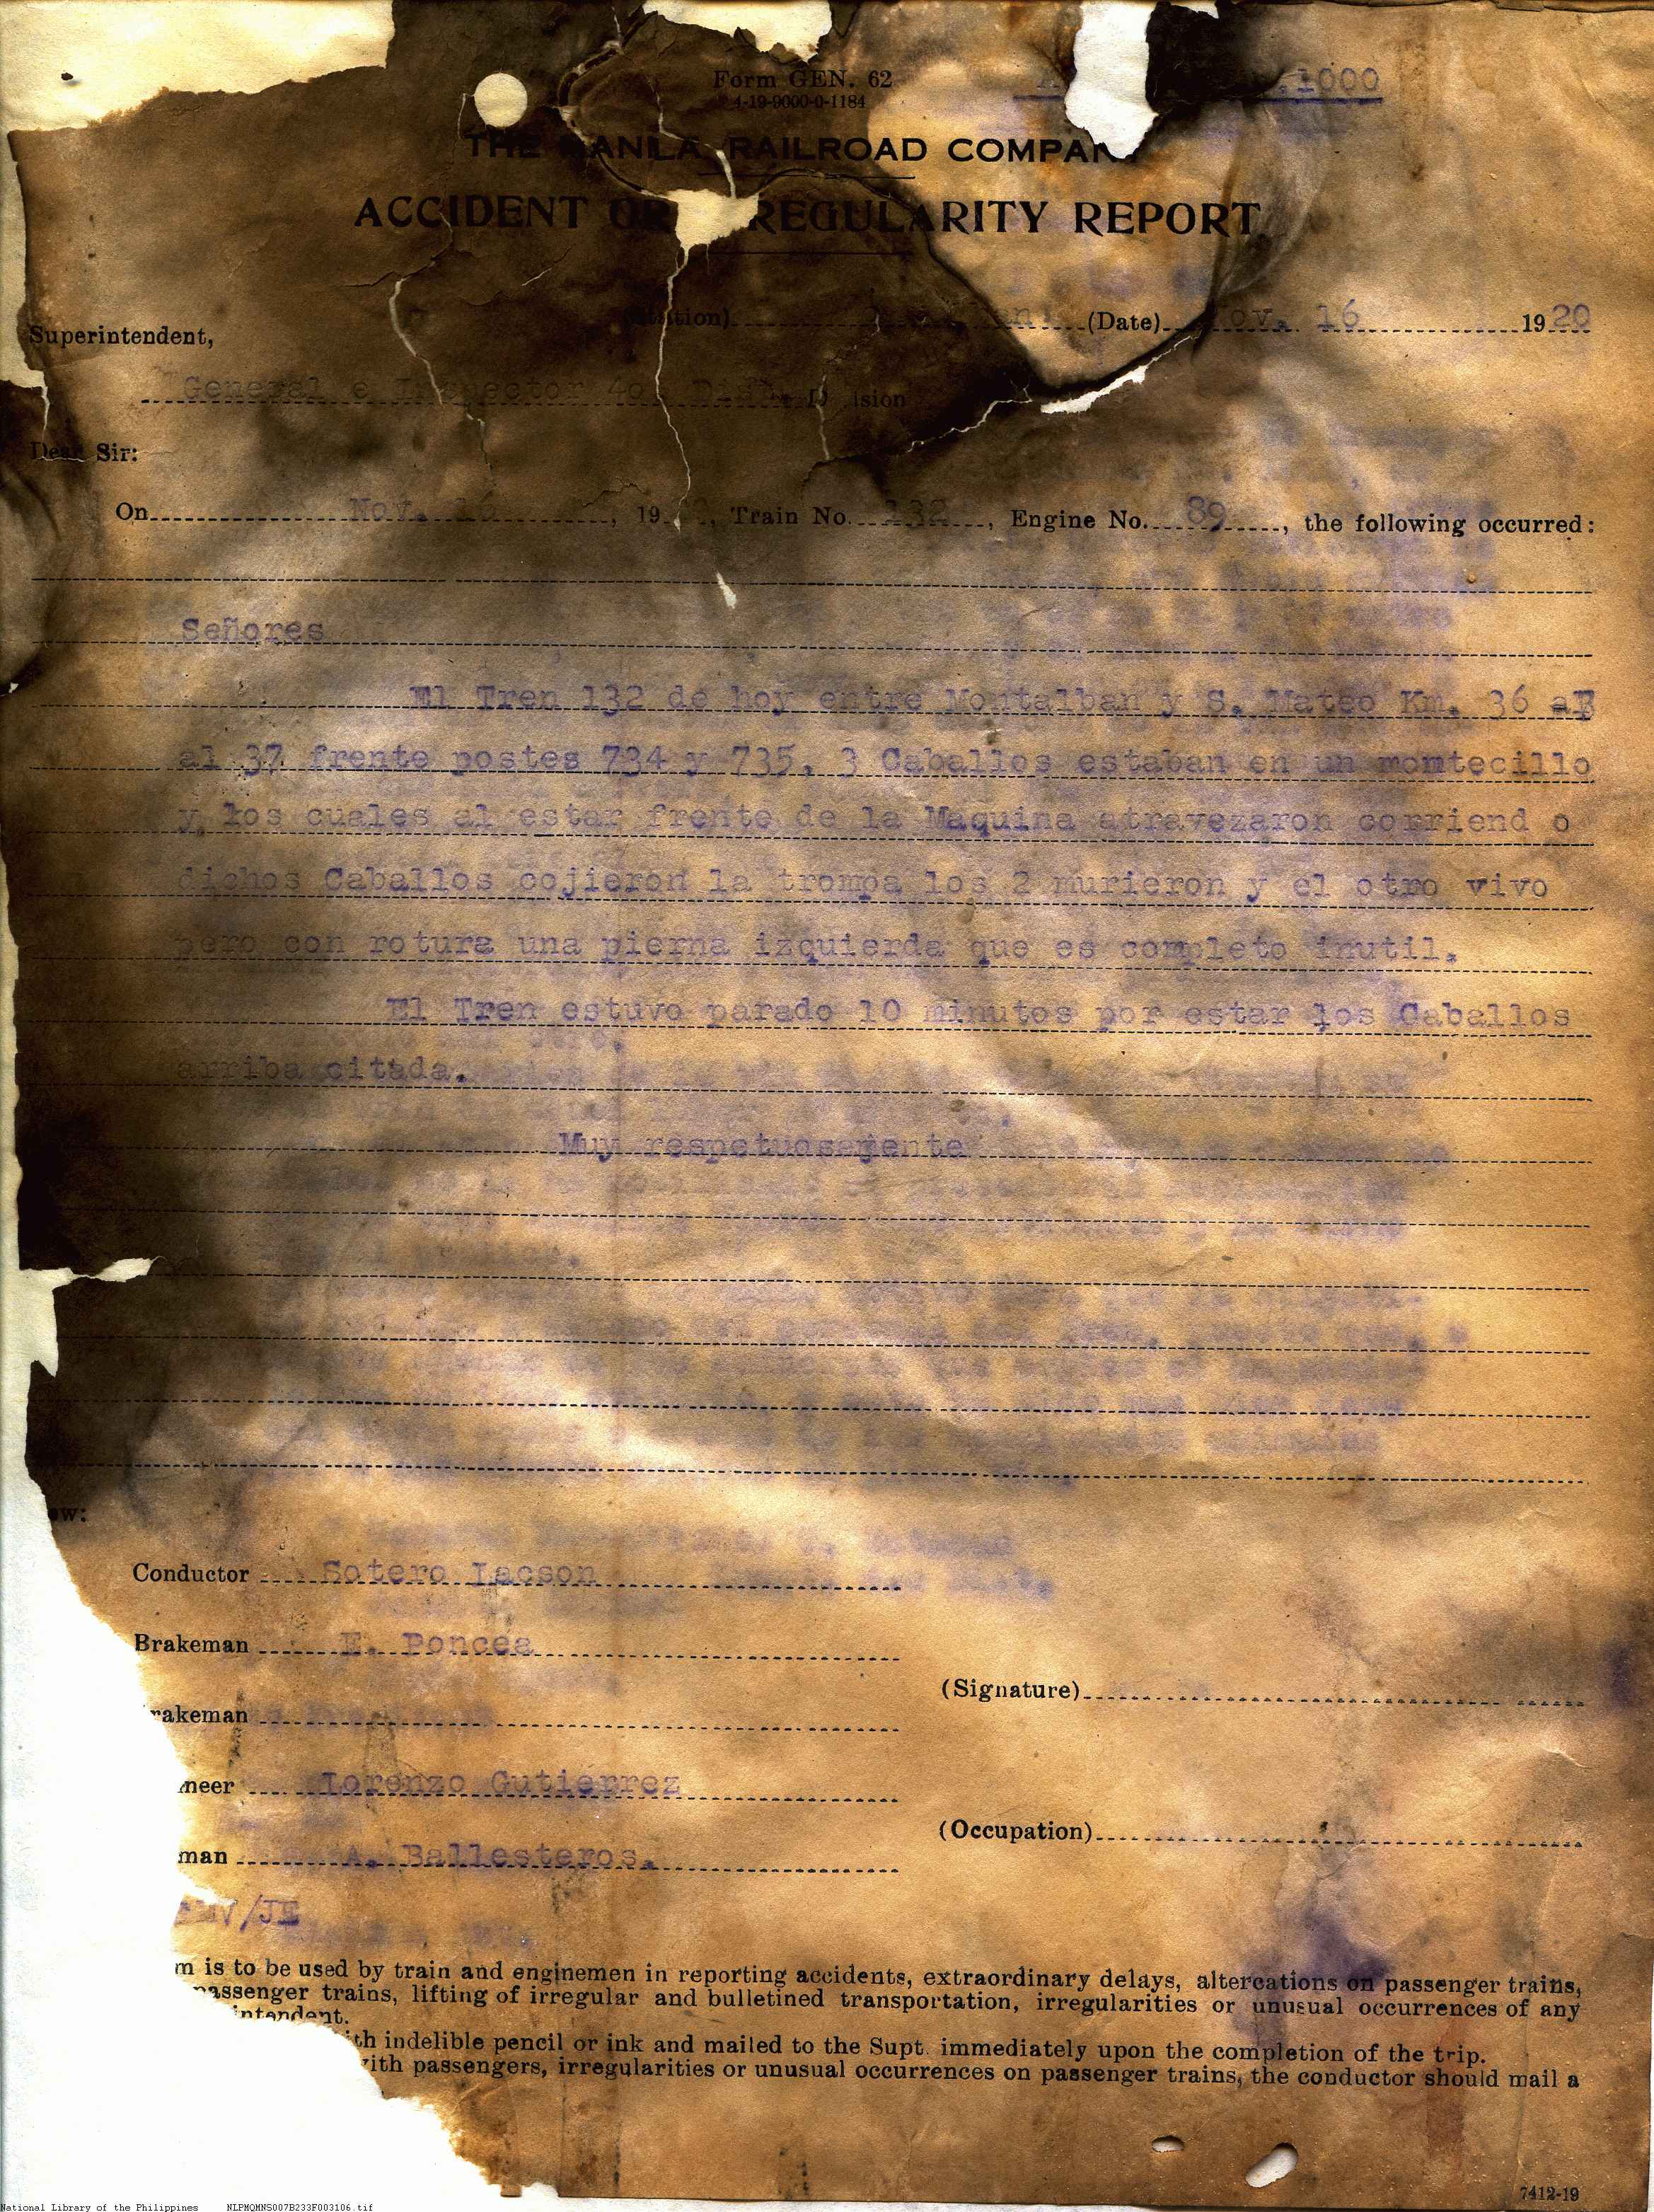 Form GEN. 62
4-19-9000-0-1184
1000
THE MANILA RAILROAD COMPANY
ACCIDENT OR IRREGULARITY REPORT
(Station) (Date) Nov. 16 1920
Superintendent,
General e Inspector 4o. Dist. Division
Dear Sir:
On Nov. 16, 19, Train No. 132, Engine No. 89, the following occurred:
Señores
El Tren 132 de hoy entre Montalban y S. Mateo Km. 36
al 37 frente postes 734 y 735, 3 Caballos estaban en un montecillo
y los cuales al estar frente de la Maquina atravezaron corriend o
dichos Caballos cojieron la trompa los 2 murieron y el otro vivo
pero con rotura una pierna izquierda que es completo inutil.
El Tren estuvo parado 10 minutos por estar los Caballos
arriba citada.
Muy respetuosamente
ow:
Conductor Sotero Lacson
Brakeman E. Poncea
(Signature)
rakeman
neer Lorenzo Gutierrez
(Occupation)
man A. Ballesteros.
/JE
m is to be used by train and enginemen in reporting accidents, extraordinary delays, altercations on passenger trains,
passenger trains, lifting of irregular and bulletined transportation, irregularities or unusual occurrences of any
intendent.
ith indelible pencil or ink and mailed to the Supt. immediately upon the completion of the trip.
with passengers, irregularities or unusual occurrences on passenger trains, the conductor should mail a
7412-19
National Library of the Philippines NLPMQMNS007B233F003106.tif